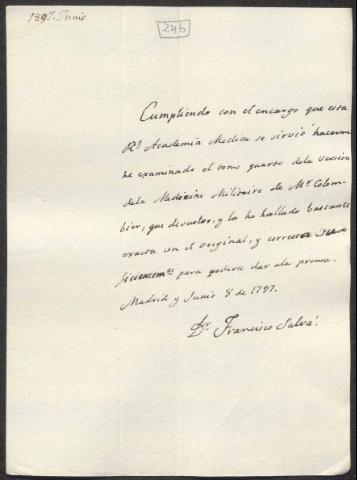 1897. Junio
246
Cumpliendo con el encargo que esta
Rl. Academia Medica se sirvió hacerme
he examinado el tomo quarto dela version
dela Medecine Militaire de Mr. Colom-
bier, que devuelvo, y la he hallado bastante
exacta con el original, y correcta Su-
ficientemte para poderse dar ala prensa.
Madrid y Junio 8 de 1797.
Dr. Francisco Salvá.